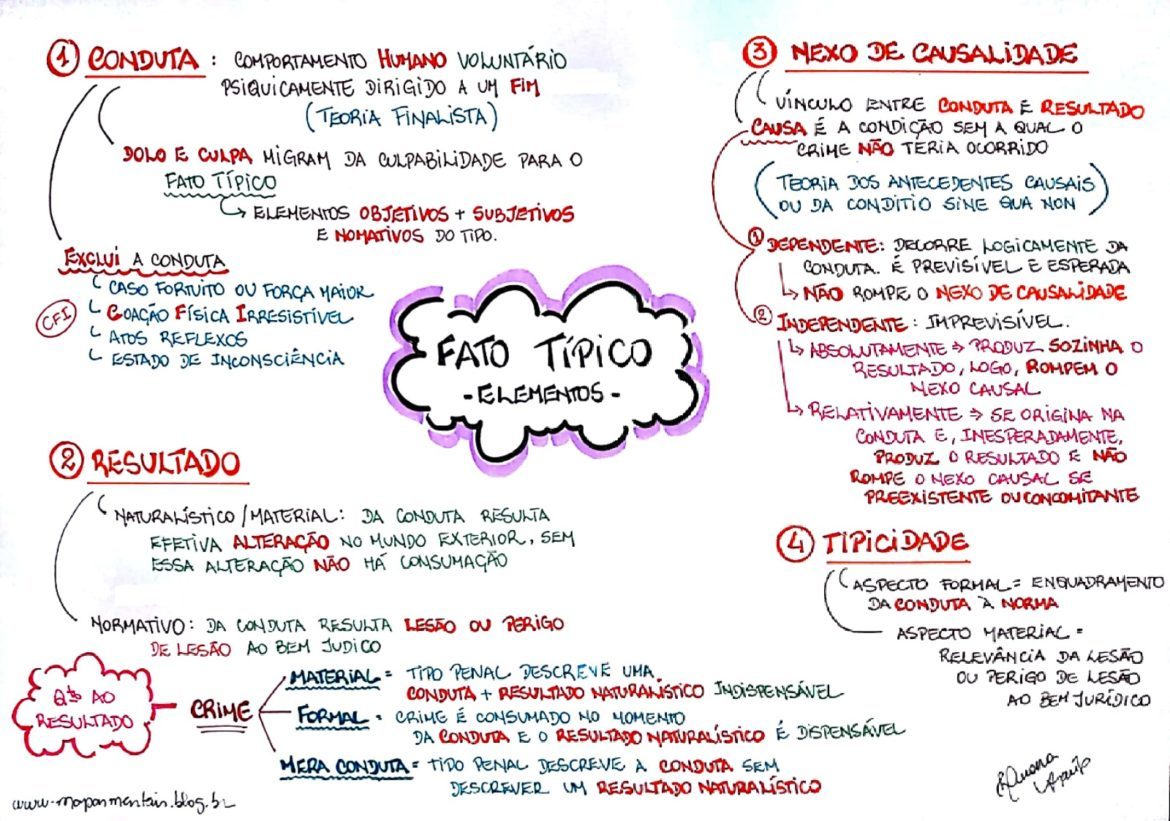 ① CONDUTA : COMPORTAMENTO HUMANO VOLUNTÁRIO
PSIQUICAMENTE DIRIGIDO A UM FIM
(TEORIA FINALISTA)
DOLO E CULPA MIGRAM DA CULPABILIDADE PARA O
FATO TÍPICO
↳ ELEMENTOS OBJETIVOS + SUBJETIVOS
E NOMATIVOS DO TIPO.
EXCLUI A CONDUTA
CASO FORTUITO OU FORÇA MAIOR
CFI
COAÇÃO FÍSICA IRRESISTÍVEL
ATOS REFLEXOS
ESTADO DE INCONSCIÊNCIA
FATO TÍPICO
- ELEMENTOS -
② RESULTADO
NATURALÍSTICO / MATERIAL: DA CONDUTA RESULTA
EFETIVA ALTERAÇÃO NO MUNDO EXTERIOR, SEM
ESSA ALTERAÇÃO NÃO HÁ CONSUMAÇÃO
NORMATIVO: DA CONDUTA RESULTA LESÃO OU PERIGO
DE LESÃO AO BEM JUDICO
Qto AO
RESULTADO
CRIME
MATERIAL = TIPO PENAL DESCREVE UMA
CONDUTA + RESULTADO NATURALÍSTICO INDISPENSÁVEL
FORMAL = CRIME É CONSUMADO NO MOMENTO
DA CONDUTA E O RESULTADO NATURALÍSTICO É DISPENSÁVEL
MERA CONDUTA = TIPO PENAL DESCREVE A CONDUTA SEM
DESCREVER UM RESULTADO NATURALÍSTICO
③ NEXO DE CAUSALIDADE
VÍNCULO ENTRE CONDUTA E RESULTADO
CAUSA É A CONDIÇÃO SEM A QUAL O
CRIME NÃO TERIA OCORRIDO
(TEORIA DOS ANTECEDENTES CAUSAIS
OU DA CONDITIO SINE QUA NON)
① DEPENDENTE: DECORRE LOGICAMENTE DA
CONDUTA. É PREVISÍVEL E ESPERADA
↳ NÃO ROMPE O NEXO DE CAUSALIDADE
② INDEPENDENTE: IMPREVISÍVEL.
↳ ABSOLUTAMENTE ⇒ PRODUZ SOZINHA O
RESULTADO, LOGO, ROMPEM O
NEXO CAUSAL
↳ RELATIVAMENTE ⇒ SE ORIGINA NA
CONDUTA E, INESPERADAMENTE,
PRODUZ O RESULTADO E NÃO
ROMPE O NEXO CAUSAL SE
PREEXISTENTE OU CONCOMITANTE
④ TIPICIDADE
ASPECTO FORMAL = ENQUADRAMENTO
DA CONDUTA À NORMA
ASPECTO MATERIAL =
RELEVÂNCIA DA LESÃO
OU PERIGO DE LESÃO
AO BEM JURÍDICO
www.mapasmentais.blog.br